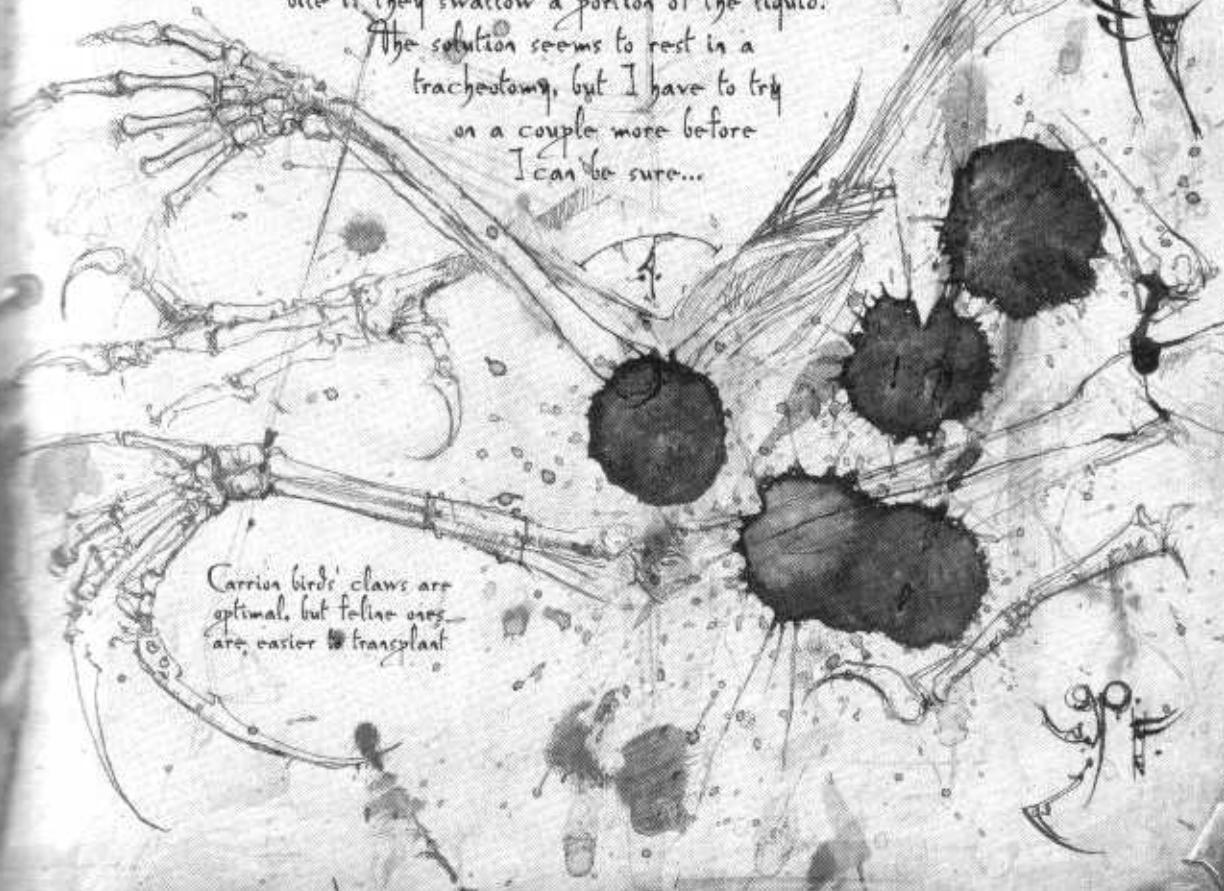 bite if they swallow a portion of the liquid.
The solution seems to rest in a
tracheotomy, but I have to try
on a couple more before
I can be sure...
Carrion birds' claws are
optimal, but feline ones
are easier to transplant